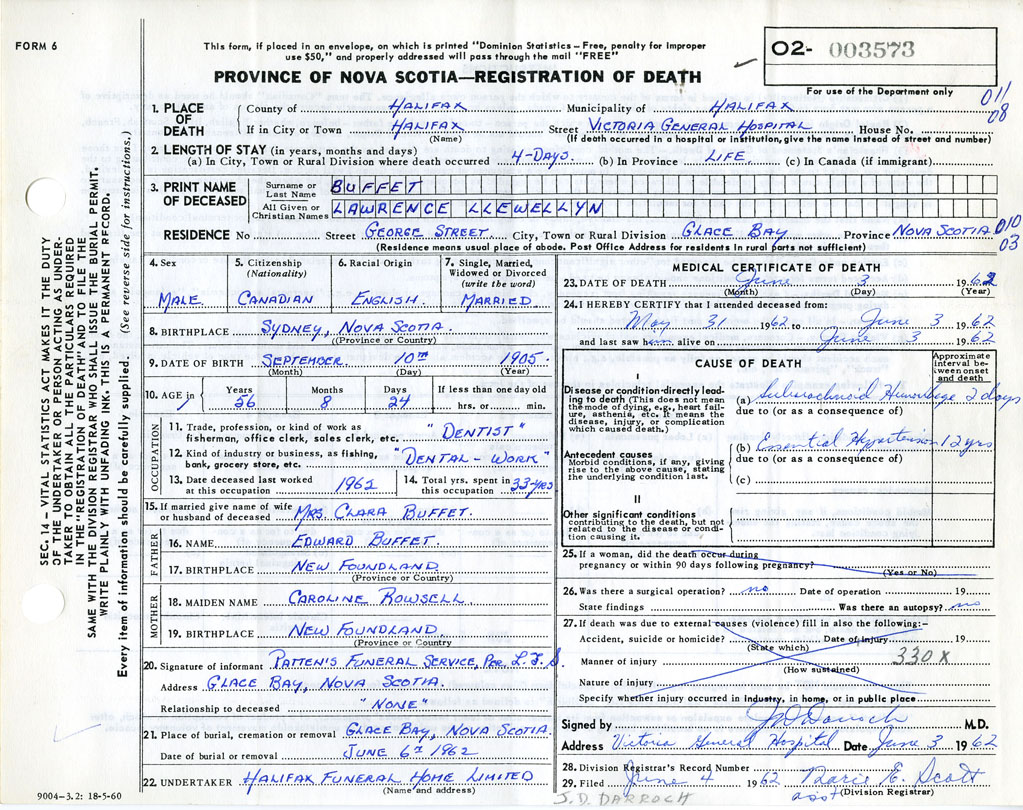 FORM 6
This form, if placed in an envelope, on which is printed "Dominion Statistics - Free, penalty for improper
use $50," and properly addressed will pass through the mail "FREE"
PROVINCE OF NOVA SCOTIA—REGISTRATION OF DEATH
02- 003573
For use of the Department only
011
08
1. PLACE OF DEATH
County of HALIFAX Municipality of HALIFAX
If in City or Town HALIFAX Street VICTORIA GENERAL HOSPITAL House No.
(Name) (If death occurred in a hospital or institution, give the name instead of street and number)
2. LENGTH OF STAY (in years, months and days)
(a) In City, Town or Rural Division where death occurred 4-DAYS. (b) In Province LIFE. (c) In Canada (if immigrant)
3. PRINT NAME OF DECEASED
Surname or Last Name BUFFET
All Given or Christian Names LAWRENCE LLEWELLYN
RESIDENCE No Street GEORGE STREET City, Town or Rural Division GLACE BAY Province NOVA SCOTIA 010
03
(Residence means usual place of abode. Post Office Address for residents in rural parts not sufficient)
4. Sex
MALE
5. Citizenship
(Nationality)
CANADIAN
6. Racial Origin
ENGLISH
7. Single, Married, Widowed or Divorced
(write the word)
MARRIED
8. BIRTHPLACE SYDNEY, NOVA SCOTIA.
(Province or Country)
9. DATE OF BIRTH SEPTEMBER 10TH 1905
(Month) (Day) (Year)
10. AGE in Years Months Days If less than one day old
56 8 24 hrs. or min.
OCCUPATION
11. Trade, profession, or kind of work as
fisherman, office clerk, sales clerk, etc. "DENTIST"
12. Kind of industry or business, as fishing,
bank, grocery store, etc. "DENTAL-WORK"
13. Date deceased last worked
at this occupation 1962
14. Total yrs. spent in
this occupation 33-yrs
15. If married give name of wife
or husband of deceased MRS. CLARA BUFFET.
FATHER
16. NAME EDWARD BUFFET.
17. BIRTHPLACE NEW FOUNDLAND
(Province or Country)
MOTHER
18. MAIDEN NAME CAROLINE ROWSELL
19. BIRTHPLACE NEW FOUNDLAND
(Province or Country
20. Signature of informant PATTEN'S FUNERAL SERVICE, PER. L.F.S.
Address GLACE BAY, NOVA SCOTIA.
Relationship to deceased "NONE"
21. Place of burial, cremation or removal GLACE BAY, NOVA SCOTIA.
Date of burial or removal JUNE 6th 1962
22. UNDERTAKER HALIFAX FUNERAL HOME LIMITED
(Name and address)
9004-3.2: 18-5-60
MEDICAL CERTIFICATE OF DEATH
23. DATE OF DEATH June 3 1962
(Month) (Day) (Year)
24. I HEREBY CERTIFY that I attended deceased from:
May 31 1962 to June 3 1962
and last saw him alive on June 3 1962
CAUSE OF DEATH
Approximate interval between onset and death
I
Disease or condition directly leading to death (This does not mean the mode of dying, e.g., heart failure, asthenia, etc. It means the disease, injury, or complication which caused death.)
(a) Subarachnoid Hemorrhage 2 days
due to (or as a consequence of)
Antecedent causes
Morbid conditions, if any, giving rise to the above cause, stating the underlying condition last.
(b) Essential Hypertension 12 yrs
due to (or as a consequence of)
(c)
II
Other significant conditions
contributing to the death, but not related to the disease or condition causing it.
25. If a woman, did the death occur during
pregnancy or within 90 days following pregnancy?
(Yes or No)
26. Was there a surgical operation? no Date of operation 19
State findings Was there an autopsy? no
27. If death was due to external causes (violence) fill in also the following:-
Accident, suicide or homicide? Date of injury 19
(State which)
Manner of injury 330X
(How sustained)
Nature of injury
Specify whether injury occurred in industry, in home, or in public place
Signed by J D Darroch M.D.
Address Victoria General Hospital Date June 3 1962
28. Division Registrar's Record Number
29. Filed June 4 1962 Marie E. Scott
asst (Division Registrar)
J.D. DARROCH
SEC. 14 - VITAL STATISTICS ACT MAKES IT THE DUTY
OF THE UNDERTAKER OR PERSON ACTING AS UNDER-
TAKER TO OBTAIN ALL THE PARTICULARS REQUIRED
IN THE "REGISTRATION OF DEATH" AND TO FILE THE
SAME WITH THE DIVISION REGISTRAR WHO SHALL ISSUE THE BURIAL PERMIT.
WRITE PLAINLY WITH UNFADING INK. THIS IS A PERMANENT RECORD.
Every item of information should be carefully supplied. (See reverse side for instructions.)